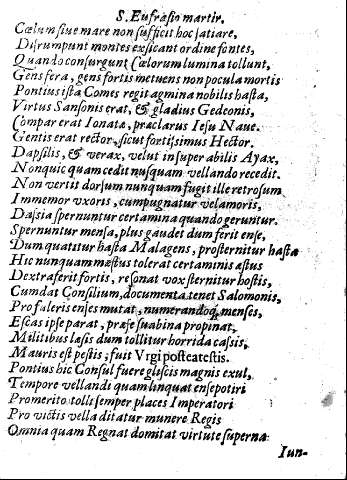 S. Eufrasio martir.
Cælum siue mare non sufficit hoc satiare,
Disrumpunt montes exsicant ordine fontes,
Quando consurgunt Cælorum lumina tollunt,
Gens fera, gens fortis metuens non pocula mortis
Pontius ista Comes regit agmina nobilis hasta,
Virtus Sansonis erat, & gladius Gedeonis,
Compar erat Ionatæ, præclarus Iesu Naue.
Gentis erat rector, sicut fortissimus Hector.
Dapsilis, & verax, velut insuperabilis Ajax,
Nonquic quam cedit nusquam vellando recedit.
Non vertit dorsum nunquam fugit ille retrosum
Immemor vxoris, cumpugnatur velamoris,
Dassia spernuntur certamina quando geruntur.
Spernuntur mensa, plus gaudet dum ferit ense,
Dum quatitur hasta Malagens, prosternitur hasta
Hic nunquam mæstus tolerat certaminis æstus
Dextra ferit fortis, resonat vox sternitur hostis,
Cum dat Consilium, documenta tenet Salomonis,
Pro faleris enses mutat, numerandoq; menses,
Escas ipse parat, præse suabina propinat,
Militibus læsis dum tollitur horrida cæssis,
Mauris est pestis; fuit Vrgi posteatestis.
Pontius hic Consul fuere gliscis magnis exul,
Tempore vellandi quam linquat ensepotiri
Promerito tolli semper places Imperatori
Pro victis vella ditatur munere Regis
Omnia quam Regnat domitat virtute superna
Iun-